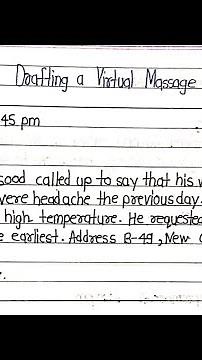 Drafting a Virtual Massage
45 pm
sood called up to say that his w
vere headache the previous day.
high temperature. He requested
e earliest. Address B-49, New